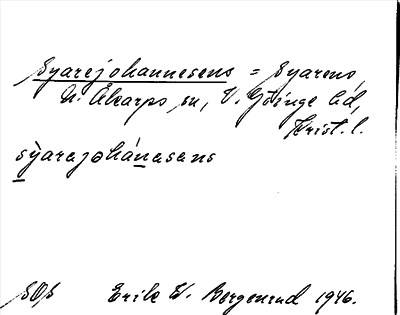 Syarejohannesens = Syarens,
N. Åkarps sn, V. Göinge hd,
Krist. l.
sỳarejohánesans
SOS Erik W. Bergenrud 1946.